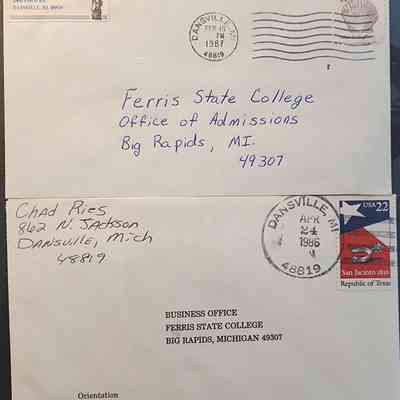 DANSVILLE, MI
1987
PM
48819
Ferris State College
Office of Admissions
Big Rapids, MI.
49307
Chad Ries
862 N. Jackson
Dansville, Mich
48819
DANSVILLE, MI
APR
24
1986
M
48819
USA 22
San Jacinto 1836
Republic of Texas
BUSINESS OFFICE
FERRIS STATE COLLEGE
BIG RAPIDS, MICHIGAN 49307
Orientation